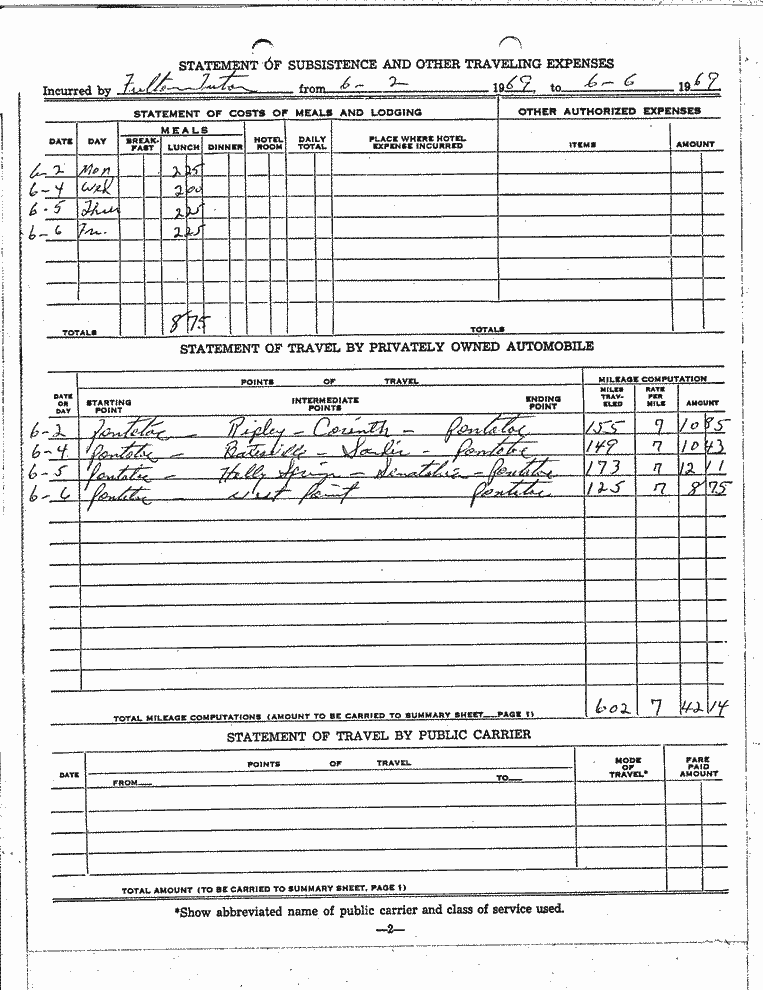 STATEMENT OF SUBSISTENCE AND OTHER TRAVELING EXPENSES
Incurred by Fulton Tutor from 6-2 1969, to 6-6 1969
STATEMENT OF COSTS OF MEALS AND LODGING OTHER AUTHORIZED EXPENSES
DATE DAY MEALS BREAK-FAST LUNCH DINNER HOTEL ROOM DAILY TOTAL PLACE WHERE HOTEL EXPENSE INCURRED ITEMS AMOUNT
6-2 Mon 2 25
6-4 Wed 2 00
6-5 Thur 2 25
6-6 Fri. 2 25
TOTALS 8 75 TOTALS
STATEMENT OF TRAVEL BY PRIVATELY OWNED AUTOMOBILE
POINTS OF TRAVEL MILEAGE COMPUTATION
DATE OR DAY STARTING POINT INTERMEDIATE POINTS ENDING POINT MILES TRAV-ELED RATE PER MILE AMOUNT
6-2 Pontotoc - Ripley - Corinth - Pontotoc 155 7 10 85
6-4 Pontotoc - Batesville - Sardis - Pontotoc 149 7 10 43
6-5 Pontotoc - Holly Springs - Senatobia - Pontotoc 173 7 12 11
6-6 Pontotoc - West Point Pontotoc 125 7 8 75
TOTAL MILEAGE COMPUTATIONS (AMOUNT TO BE CARRIED TO SUMMARY SHEET PAGE 1) 602 7 42 14
STATEMENT OF TRAVEL BY PUBLIC CARRIER
DATE POINTS OF TRAVEL MODE OF TRAVEL* FARE PAID AMOUNT
FROM TO
TOTAL AMOUNT (TO BE CARRIED TO SUMMARY SHEET, PAGE 1)
*Show abbreviated name of public carrier and class of service used.
—2—